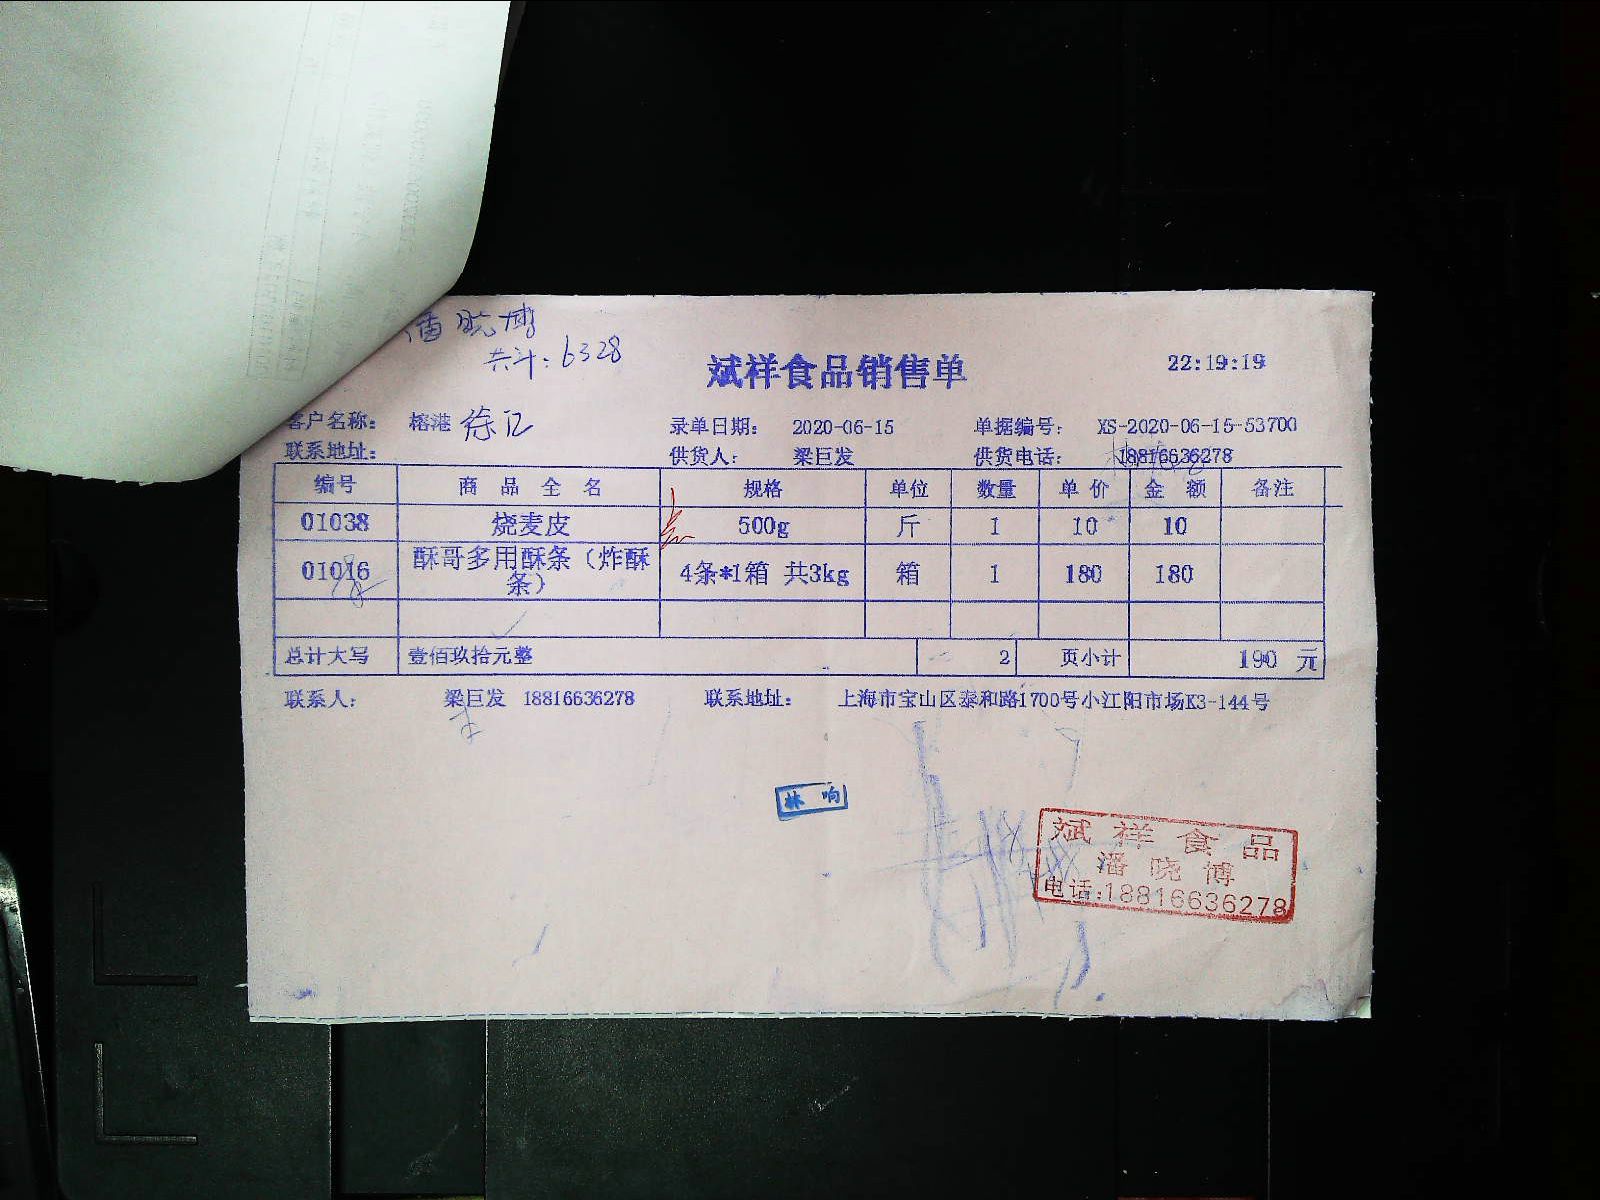 潘晓博
共计:6328
斌祥食品销售单 22:19:19
客户名称: 榕港 徐记 录单日期: 2020-06-15 单据编号: XS-2020-06-15-53700
联系地址: 供货人: 梁巨发 供货电话: 18816636278
编号 商 品 全 名 规格 单位 数量 单 价 金 额 备注
01038 烧麦皮 500g 斤 1 10 10
01016 酥哥多用酥条（炸酥条） 4条*1箱 共3kg 箱 1 180 180
总计大写 壹佰玖拾元整 2 页小计 190 元
联系人: 梁巨发 18816636278 联系地址: 上海市宝山区泰和路1700号小江阳市场K3-144号
林 响
斌 祥 食 品
潘 晓 博
电话:18816636278